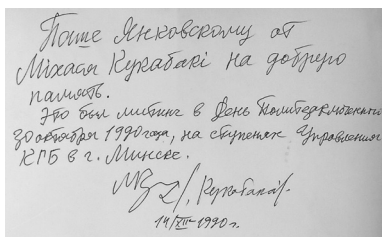 Паше Янковскому от
Міхася Кукабакі на добрую
память.
Это был митинг в День Политзаключенного
30 октября 1990 года, на ступенях Управления
КГБ в г. Минске.
/Кукабака/.
14/XII-1990 г.